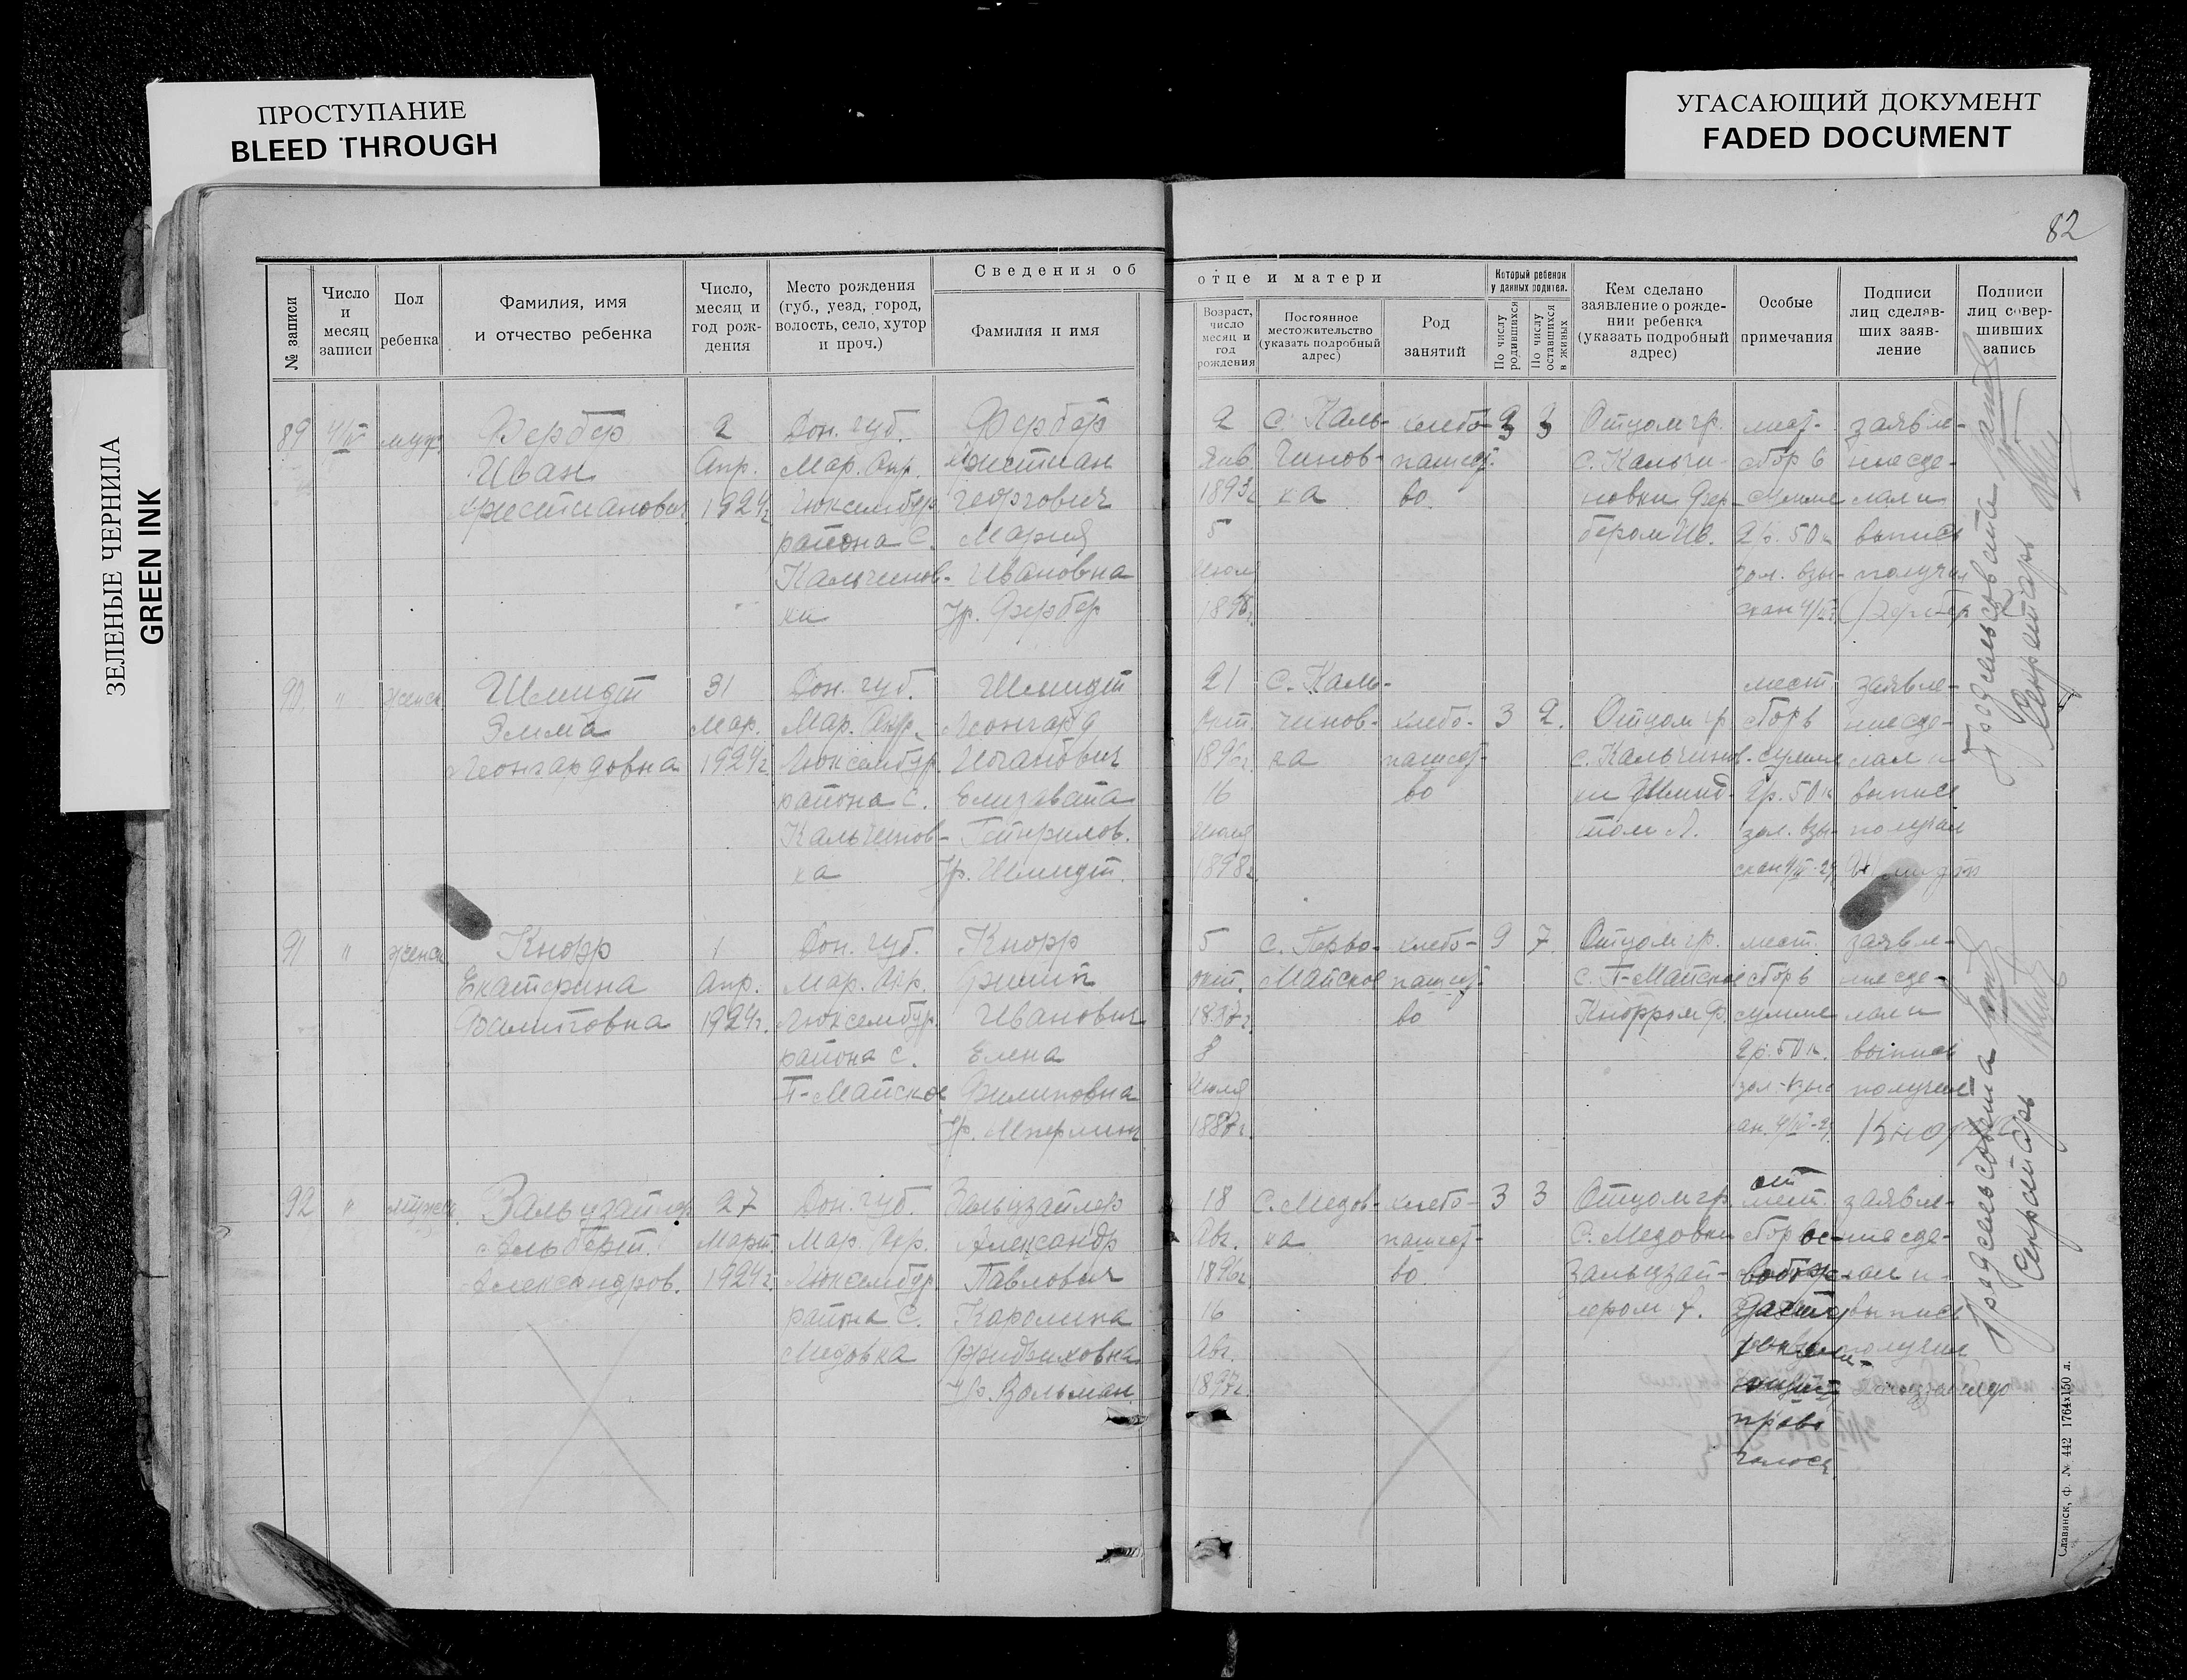 ПРОСТУПАНИЕ
BLEED THROUGH
УГАСАЮЩИЙ ДОКУМЕНТ
FADED DOCUMENT
ЗЕЛЕНЫЕ ЧЕРНИЛА
GREEN INK
82
№ записи
Число
и
месяц
записи
Пол
ребенка
Фамилия, имя
и отчество ребенка
Число,
месяц и
год рож-
дения
Место рождения
(губ., уезд, город,
волость, село, хутор
и проч.)
Сведения об
Фамилия и имя
отце и матери
Возраст,
число
месяц и
год
рождения
Постоянное
местожительство
(указать подробный
адрес)
Род
занятий
Который ребенок
у данных родител.
По числу
родившихся
По числу
оставшихся
в живых
Кем сделано
заявление о рожде-
нии ребенка
(указать подробный
адрес)
Особые
примечания
Подписи
лиц сделав-
ших заяв-
ление
Подписи
лиц совер-
шивших
запись
89
4/IV
муж.
Фербер
Иван
Христианович
2
Апр.
1924г.
Дон. губ.
Мар. Окр.
Люксембур.
района С.
Кальчинов-
ки
Фербер
Христиан
Георгович
Мария
Ивановна
Ур. Фербер
2
Янв.
1893г.
5
Июля
С. Каль-
чинов-
ка
хлебо-
пашест-
во
3
Отцом гр.
С. Кальчи-
новки Фер-
бером
мест.
сбор в
сумме
2р. 50к
зол. взы-
скан 4/IV
заявле-
ние сде-
лал и
выпись
получил
Фербер
90
"
женск
Шмидт
Эмма
Леонгардовна
31
Мар.
1924г.
Дон. губ.
Мар. Окр.
Люксембур.
района С.
Кальчинов-
ка
Шмидт
Леонгард
Иоганович
Елизавета
Ур. Шмидт.
21
Окт.
1896г.
16
Июля
1898г.
С. Каль-
чинов-
ка
хлебо-
пашест-
во
3
2.
Отцом гр
С. Кальчинов-
ки Шмид-
том Л.
мест
сбор в
сумме
2р. 50к
зол. взы-
скан 4/IV-24
заявле-
ние сде-
лал и
выпись
получил
Шмидт
91
"
женск
Кнорр
Екатерина
Филиповна
1
Апр.
1924г.
Дон. губ.
Мар. Окр.
Люксембур.
района С.
П-Майское
Кнорр
Филип
Иванович
Елена
Филиповна
5
окт.
8
Июля
1887г.
С. Перво-
Майское
хлебо-
пашест-
во
9
7.
Отцом гр.
С. П-Майское
Кнорром Ф.
мест.
сбор в
сумме
2р. 50к.
зол. взыс
4/IV-24
заявле-
ние сде-
лал и
выпись
получил
Кнорр
92
"
мужск.
Зальцзайлер
Альберт.
Александров.
27
Март.
1924г.
Дон. губ.
Мар. Окр.
Люксембур.
района С.
Медовка
Зальцзайлер
Александр
Павлович
Каролина
Фридриховна
Ур. Вольман
18
Авг.
1896г.
16
Авг.
1897г.
С. Медов-
ка
хлебо-
пашест-
во.
3
3
Отцом гр.
С. Медовки
Зальцзай-
лером А.
от
мест.
сбор ос-
права
голоса
заявле-
ние сде-
лал и
выпись
получил
Зальцзайлер
Предсельсовета
Секретарь
Предсельсовета
Секретарь
Славянск, ф. № 442 1764х150 л.